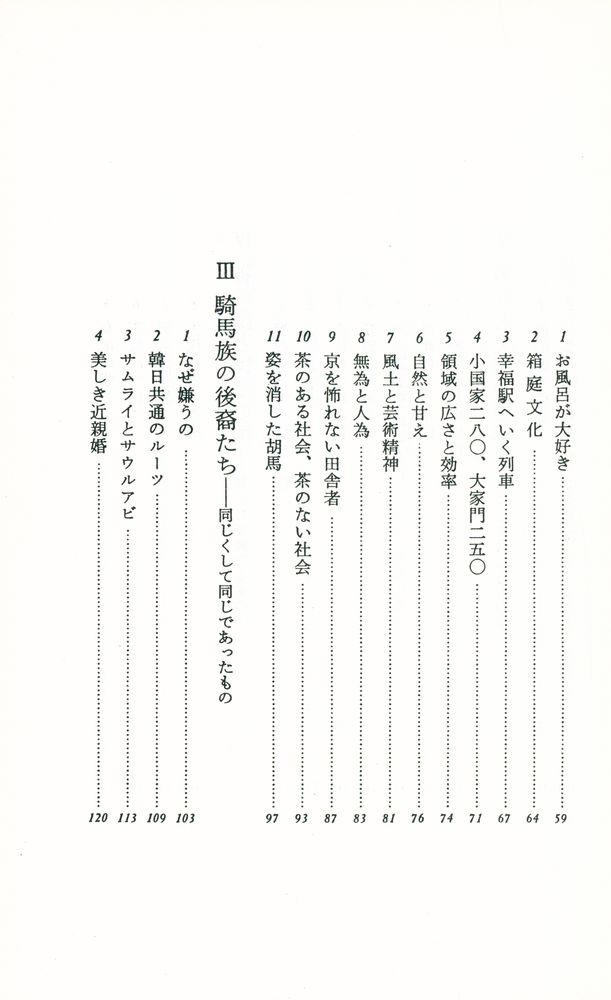 1 お風呂が大好き 59
2 箱庭文化 64
3 幸福駅へいく列車 67
4 小国家二八〇、大家門二五〇 71
5 領域の広さと効率 74
6 自然と甘え 76
7 風土と芸術精神 81
8 無為と人為 83
9 京を怖れない田舎者 87
10 茶のある社会、茶のない社会 93
11 姿を消した胡馬 97
III 騎馬族の後裔たち——同じくして同じであったもの
1 なぜ嫌うの 103
2 韓日共通のルーツ 109
3 サムライとサウルアビ 113
4 美しき近親婚 120